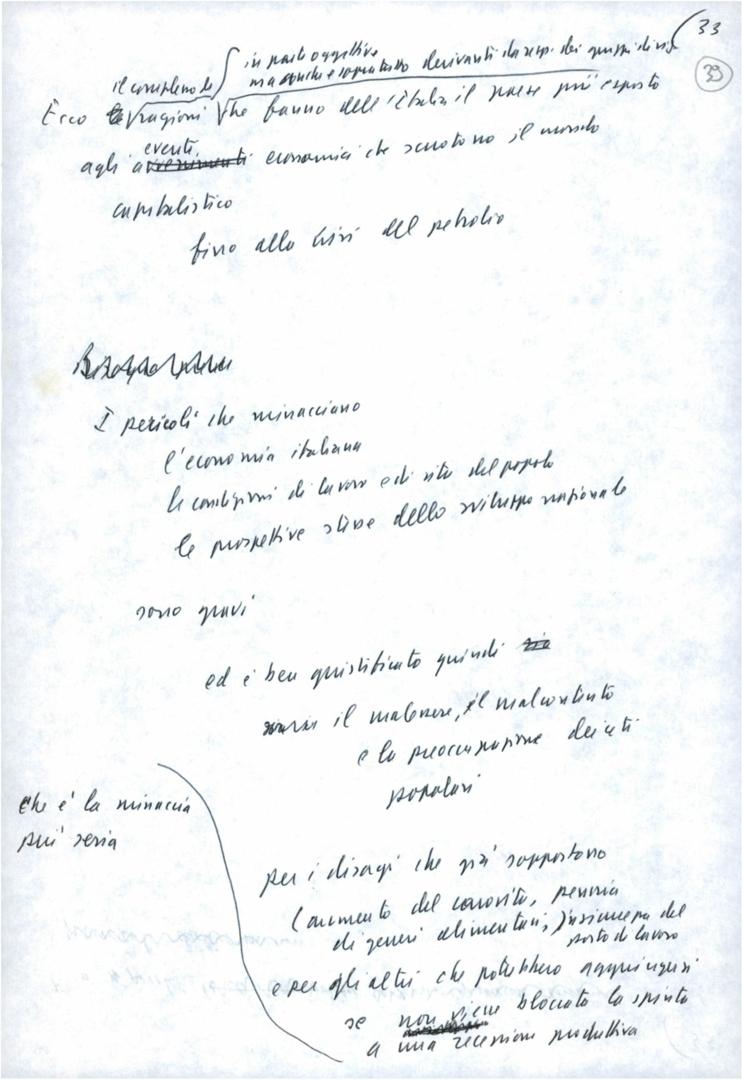 33
39
in parte oggettive
il complesso de ma anche e soprattutto derivanti da resp. dei gruppi dirig.
Ecco le ragioni che fanno dell'Italia il paese più esposto
eventi
agli avvenimenti economici che scuotono il mondo
capitalistico
fino alla crisi del petrolio
I pericoli che minacciano
l'economia italiana
le condizioni di lavoro e di vita del popolo
le prospettive stesse dello sviluppo nazionale
sono gravi
ed è ben giustificato quindi sia
il malessere, il malcontento
e la preoccupazione dei ceti
popolari
che è la minaccia
più seria
per i disagi che già sopportano
(aumento del carovita, penuria
di generi alimentari, insicurezza del
posto di lavoro
e per gli altri che potrebbero aggiungersi
se non viene bloccata la spinta
a una recessione produttiva